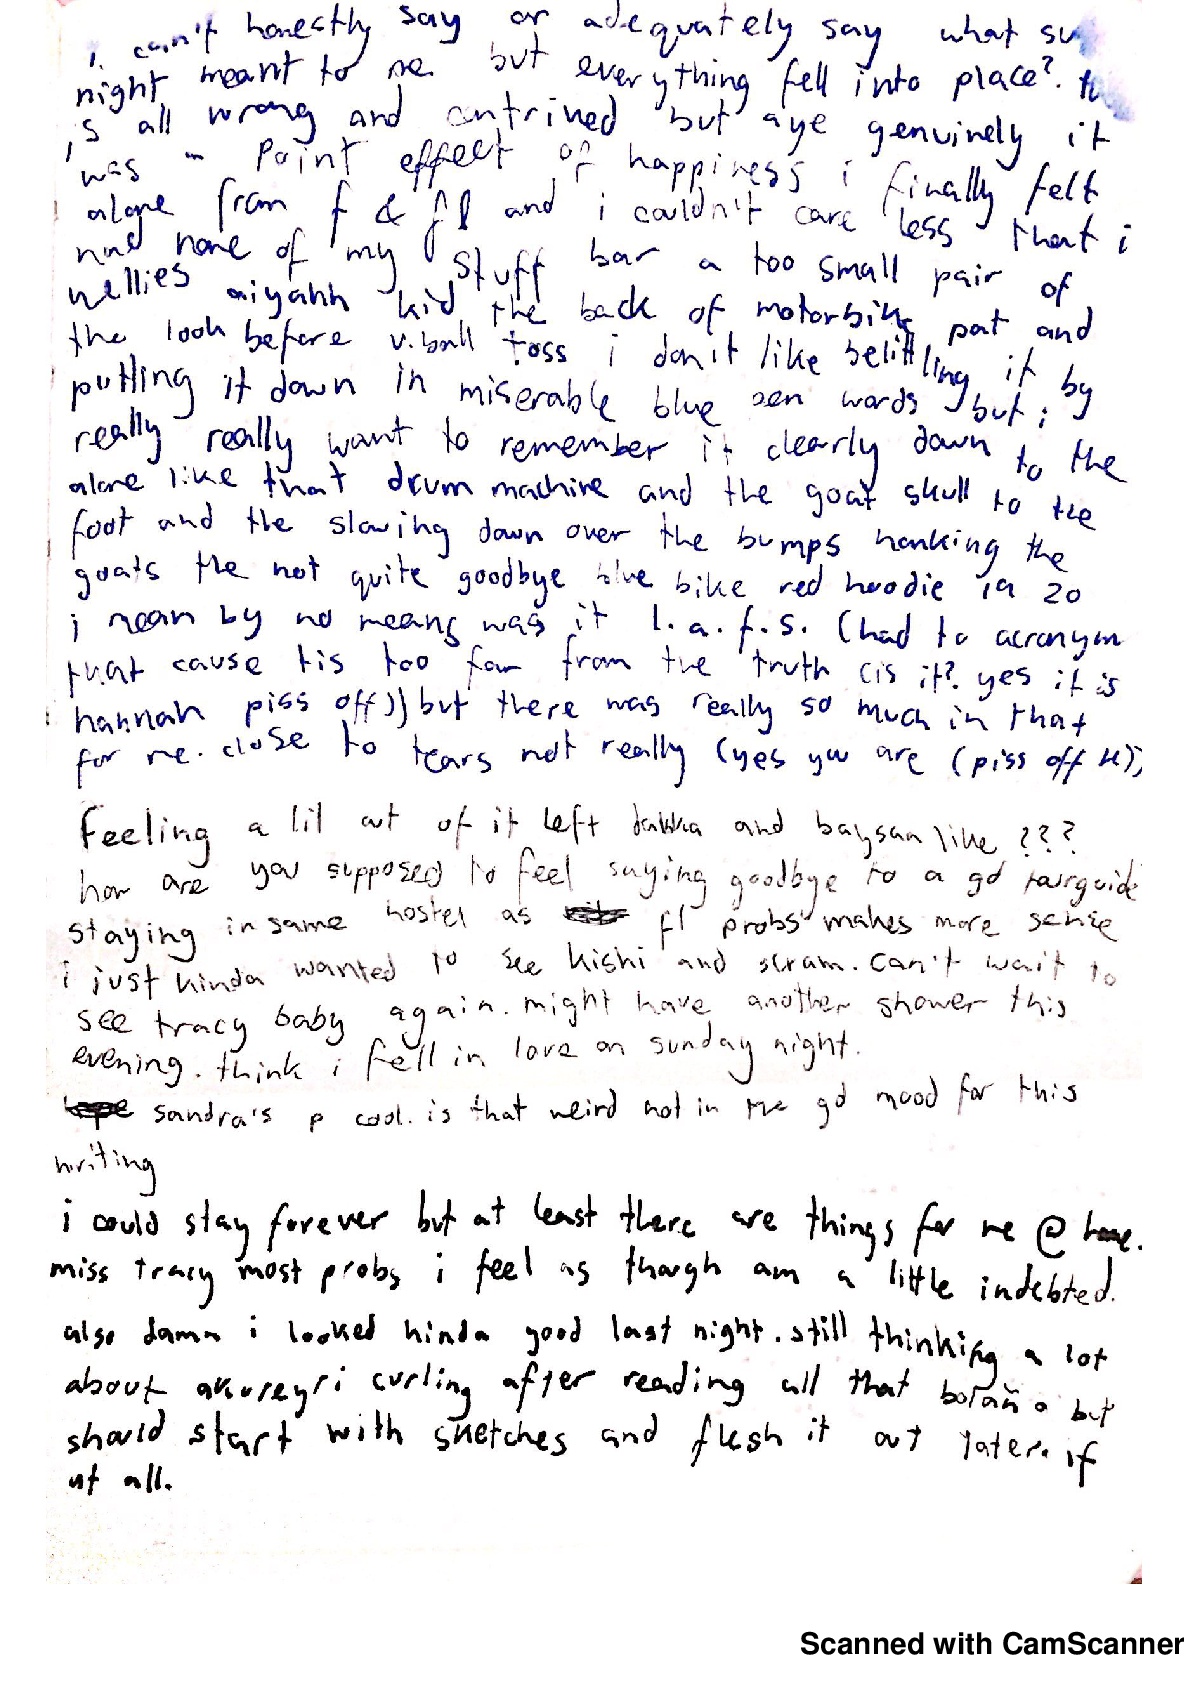 i can't honestly say or adequately say what su
night meant to me but everything fell into place?
is all wrong and contrived but aye genuinely it
was a point effect of happiness i finally felt
alone from f & fl and i couldn't care less that i
had none of my stuff bar a too small pair of
wellies aiyahh kid the back of motorbike pat and
the look before v.ball toss i don't like belittling it by
putting it down in miserable blue pen words but i
really really want to remember it clearly down to the
alone like that drum machine and the goat skull to the
foot and the slowing down over the bumps honking the
goats the not quite goodbye blue bike red hoodie 19 20
i mean by no means was it l.a.f.s. (had to acronym
that cause tis too far from the truth (is it? yes it is
hannah piss off)) but there was really so much in that
for me. close to tears not really (yes you are (piss off H))
feeling a lil out of it left dakka and baysan like ???
how are you supposed to feel saying goodbye to a gd tourguide
staying in same hostel as fl probs makes more sense
i just kinda wanted to see kishi and scram. can't wait to
see tracy baby again. might have another shower this
evening. think i fell in love on sunday night.
sandra's p cool. is that weird not in the gd mood for this
writing
i could stay forever but at least there are things for me @ home.
miss tracy most probs i feel as though am a little indebted.
also damn i looked kinda good last night. still thinking a lot
about akureyri curling after reading all that bolaño but
should start with sketches and flesh it out later. if
at all.
Scanned with CamScanner